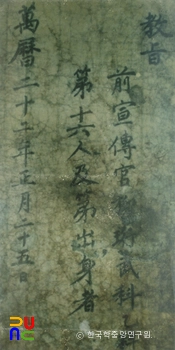 教旨
前宣傳官 武科
第十六人及第出身者
萬曆二十二年正月二十五日
© 한국학중앙연구원.